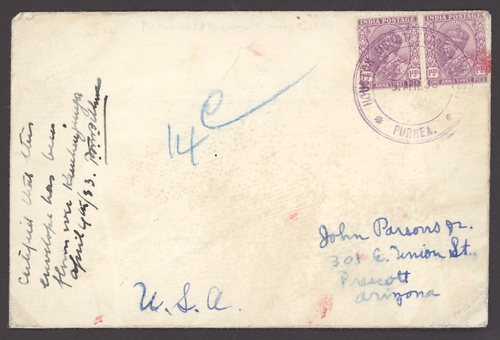 INDIA POSTAGE INDIA POSTAGE
PURNEA.
14 C
Certified that this
envelope has been
flown over Kinchinjunga
April 4th/33.
John Parsons Jr.
301 E. Union St.,
Prescott
Arizona
U.S.A.